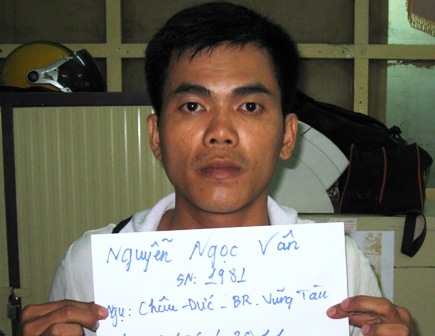 Nguyễn Ngọc Vân
SN: 1981
Ngụ: Châu-Đức-BR.Vũng Tàu